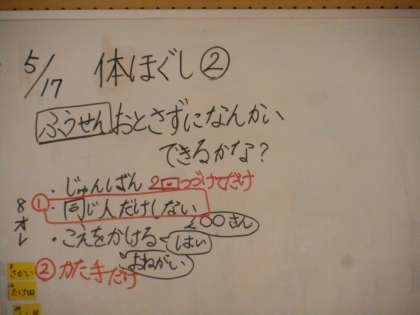 5/17 体ほぐし②
ふうせんおとさずになんかい
できるかな?
・じゅんばん 2回つづけてだけ
①・同じ人だけしない
・こえをかける
○○さん
はい
おねがい
②かた手だけ
8オレ
さかい